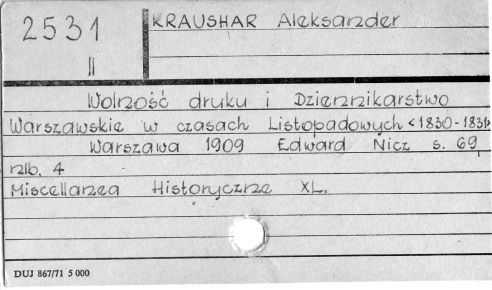 2531
II
KRAUSHAR Aleksander
Wolność druku i Dziennikarstwo
Warszawskie w czasach Listopadowych <1830-1831>
Warszawa 1909 Edward Nicz s. 69,
nlb. 4
Miscellanea Historyczne XL.
DUJ 867/71 5 000